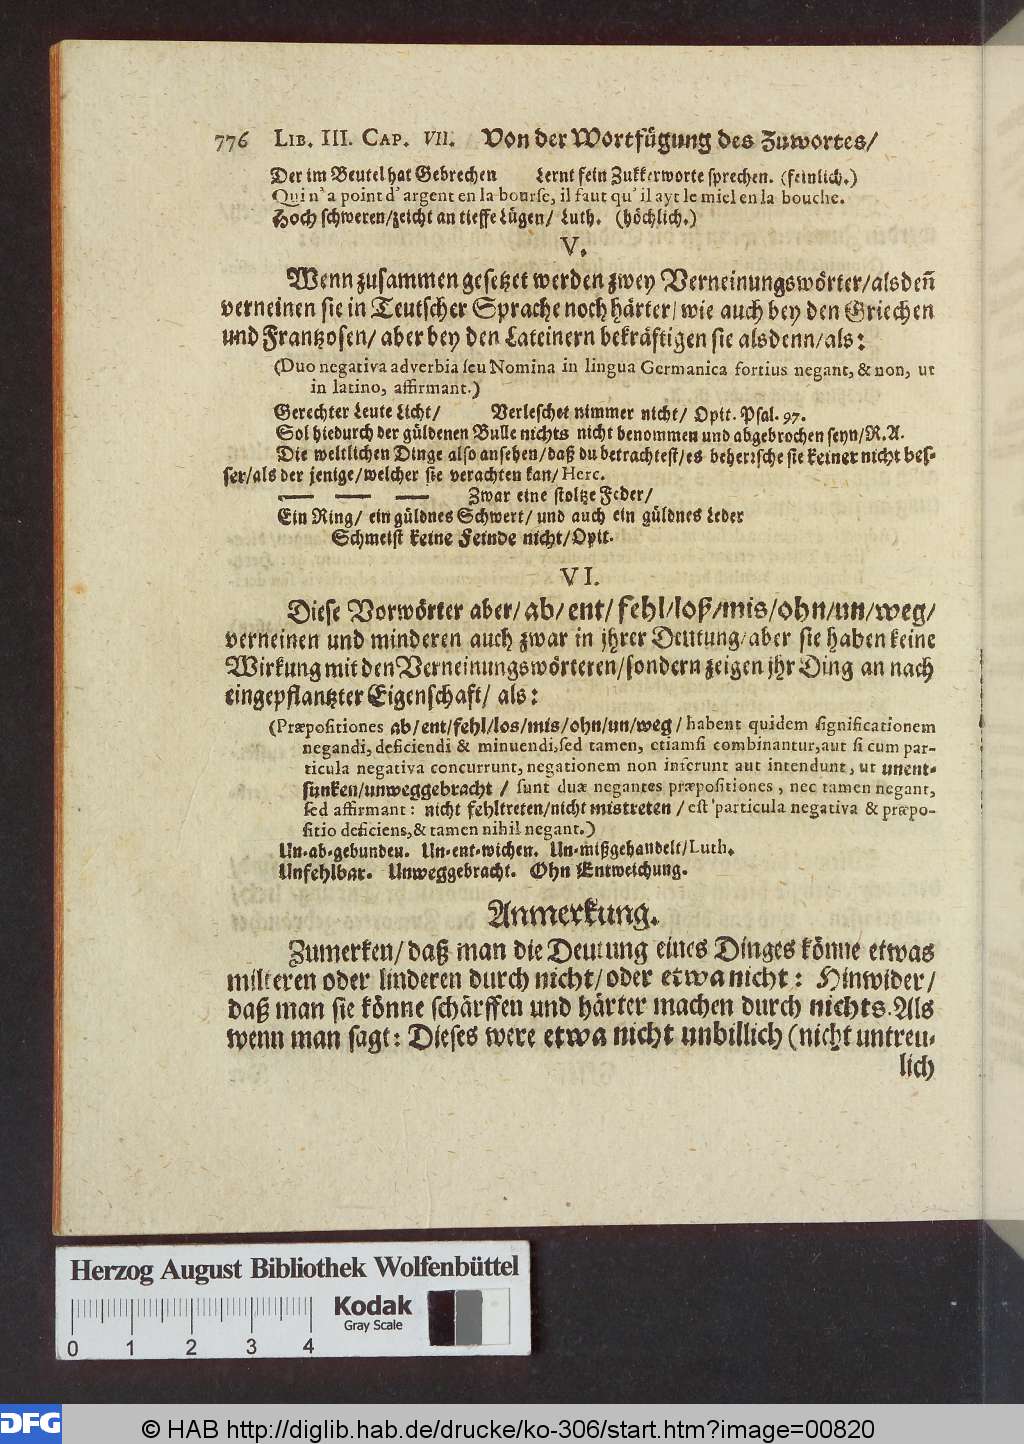 776 LIB. III. CAP. VII. Von der Wortfügung des Zuwortes/
Der im Beutel hat Gebrechen Lernt fein Zukkerworte sprechen. (feinlich.)
Qui n'a point d'argent en la bourse, il faut qu'il ayt le miel en la bouche.
Hoch schweren/zeicht an tieffe Lügen/ Luth. (höchlich.)
V.
Wenn zusammen gesetzet werden zwey Verneinungswörter/alsdeñ
verneinen sie in Teutscher Sprache noch härter/ wie auch bey den Griechen
und Frantzosen/ aber bey den Lateinern bekräftigen sie alsdenn/als:
(Duo negativa adverbia seu Nomina in lingua Germanica fortius negant, & non, ut
in latino, affirmant.)
Gerechter Leute Licht/ Verleschet nimmer nicht/ Opit. Psal. 97.
Sol hiedurch der güldenen Bulle nichts nicht benommen und abgebrochen seyn/R.A.
Die weltlichen Dinge also ansehen/daß du betrachtest/es beherrsche sie keiner nicht bes-
ser/als der jenige/welcher sie verachten kan/Herc.
— — — Zwar eine stoltze Feder/
Ein Ring/ ein güldnes Schwert/ und auch ein güldnes Leder
Schmeist keine Feinde nicht/Opit.
VI.
Diese Vorwörter aber/ab/ent/fehl/loß/mis/ohn/un/weg/
verneinen und minderen auch zwar in jhrer Deutung/aber sie haben keine
Wirkung mit den Verneinungswörteren/sondern zeigen jhr Ding an nach
eingepflantzter Eigenschaft/ als:
(Præpositiones ab/ent/fehl/los/mis/ohn/un/weg/ habent quidem significationem
negandi, deficiendi & minuendi, sed tamen, etiamsi combinantur, aut si cum par-
ticula negativa concurrunt, negationem non inserunt aut intendunt, ut unent-
sunken/unweggebracht/ sunt duæ negantes præpositiones, nec tamen negant,
sed affirmant: nicht fehltreten/nicht mistreten/ est particula negativa & præpo-
sitio deficiens, & tamen nihil negant.)
Un-ab-gebunden. Un-ent-wichen. Un-mißgehandelt/Luth.
Unfehlbar. Unweggebracht. Ohn Entweichung.
Anmerkung.
Zumerken/ daß man die Deutung eines Dinges könne etwas
milteren oder linderen durch nicht/oder etwa nicht: Hinwider/
daß man sie könne schärffen und härter machen durch nichts. Als
wenn man sagt: Dieses were etwa nicht unbillich (nicht untreu-
lich
Herzog August Bibliothek Wolfenbüttel
Kodak
Gray Scale
0 1 2 3 4
DFG © HAB http://diglib.hab.de/drucke/ko-306/start.htm?image=00820